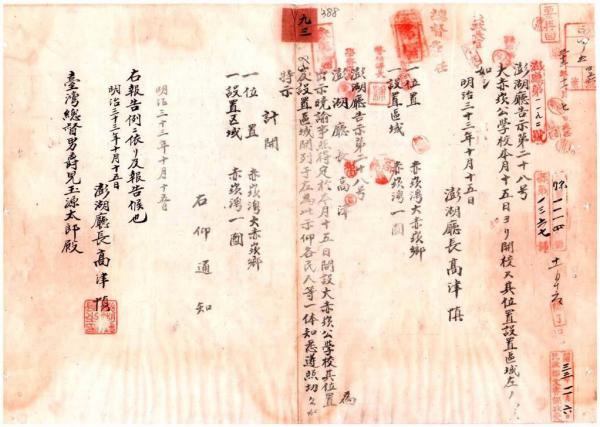 九三
388
澎湖廳告示第二十八号
大赤崁公學校本月十五日ヨリ開校ス其位置設置區域左ノ
如シ
明治三十三年十月十五日
澎湖廳長高津慎
一位置 赤崁湾大赤崁鄉
一設置區域 赤崁湾一圓
澎湖廳告示第二十八号
澎湖廳長高津 為
出示曉諭事照得定於本月十五日開設大赤崁公學校其位置
及設置區域開列于左為此示仰各民人等一体知悉遵照切
特示
計開
一位置 赤崁湾大赤崁鄉
一設置区域 赤崁湾一圓
右仰通知
明治三十三年十月十五日
右報告例ニ依リ及報告候也
明治三十三年十月十五日
澎湖廳長高津慎
臺灣總督男爵兒玉源太郎殿